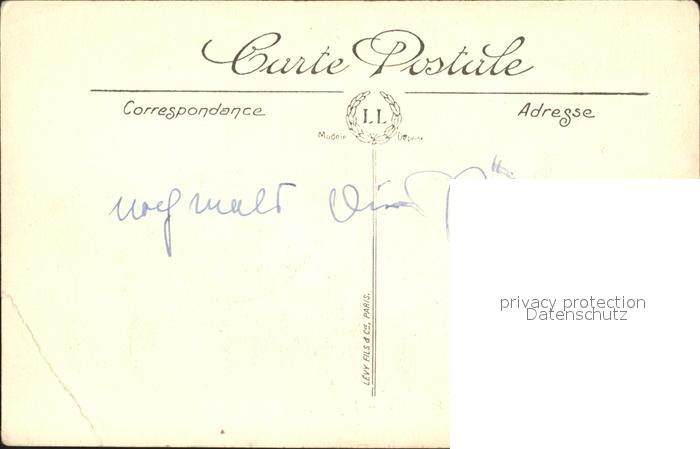 Carte Postale
Correspondance
LL
Adresse
nochmals
LÉVY FILS & Cie, PARIS.
privacy protection
Datenschutz